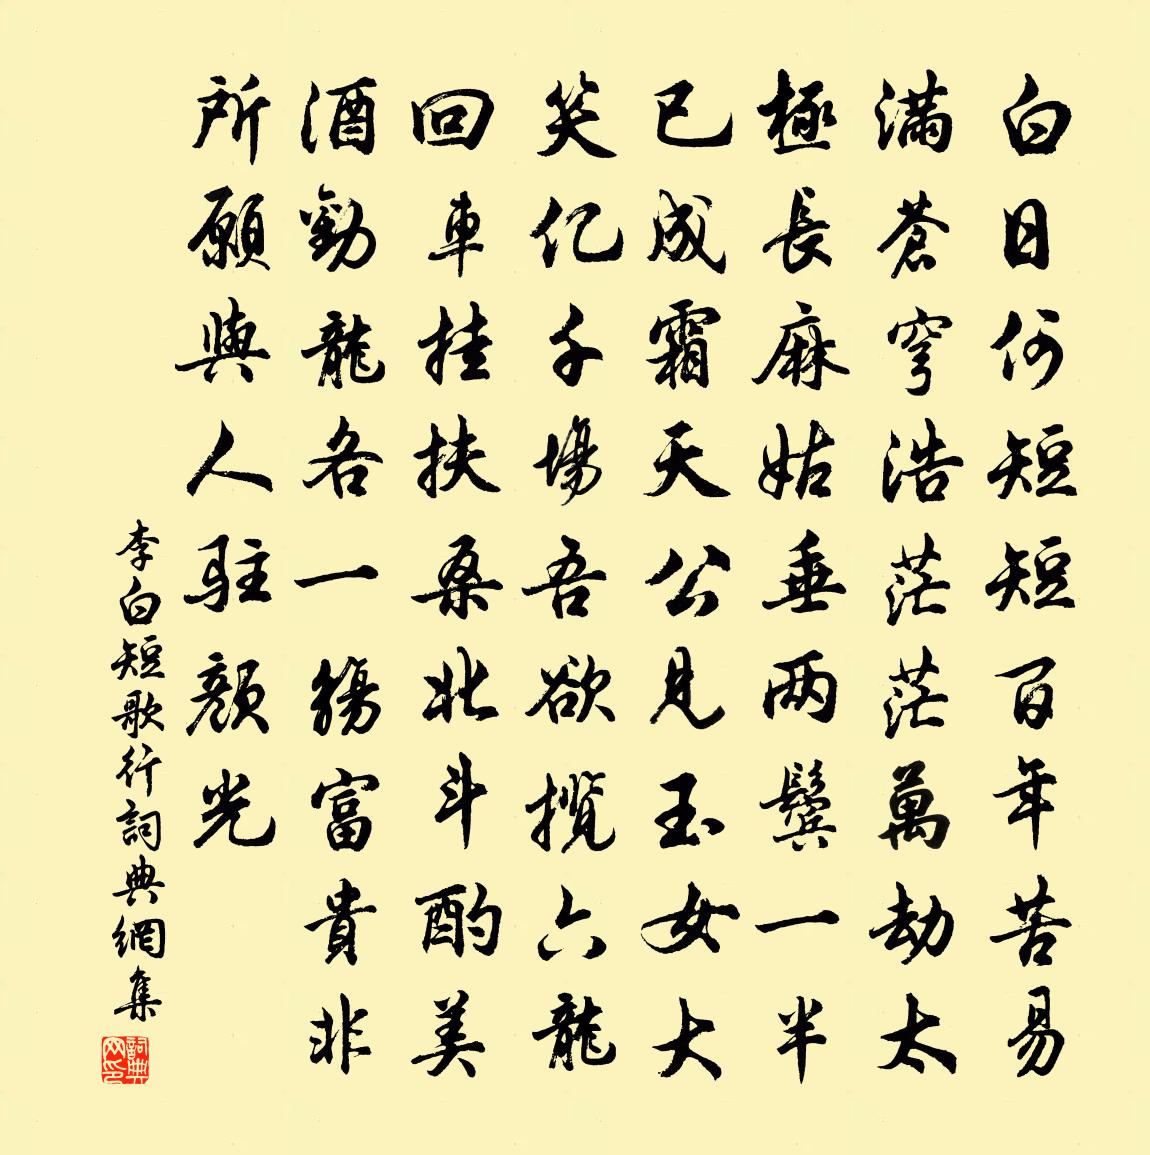 白日何短短百年苦易
滿蒼穹浩茫茫萬劫太
極長麻姑垂兩鬢一半
已成霜天公見玉女大
笑億千場吾欲攬六龍
回車挂扶桑北斗酌美
酒勸龍各一觴富貴非
所願與人駐顏光
李白短歌行詞典網集
詞典网印